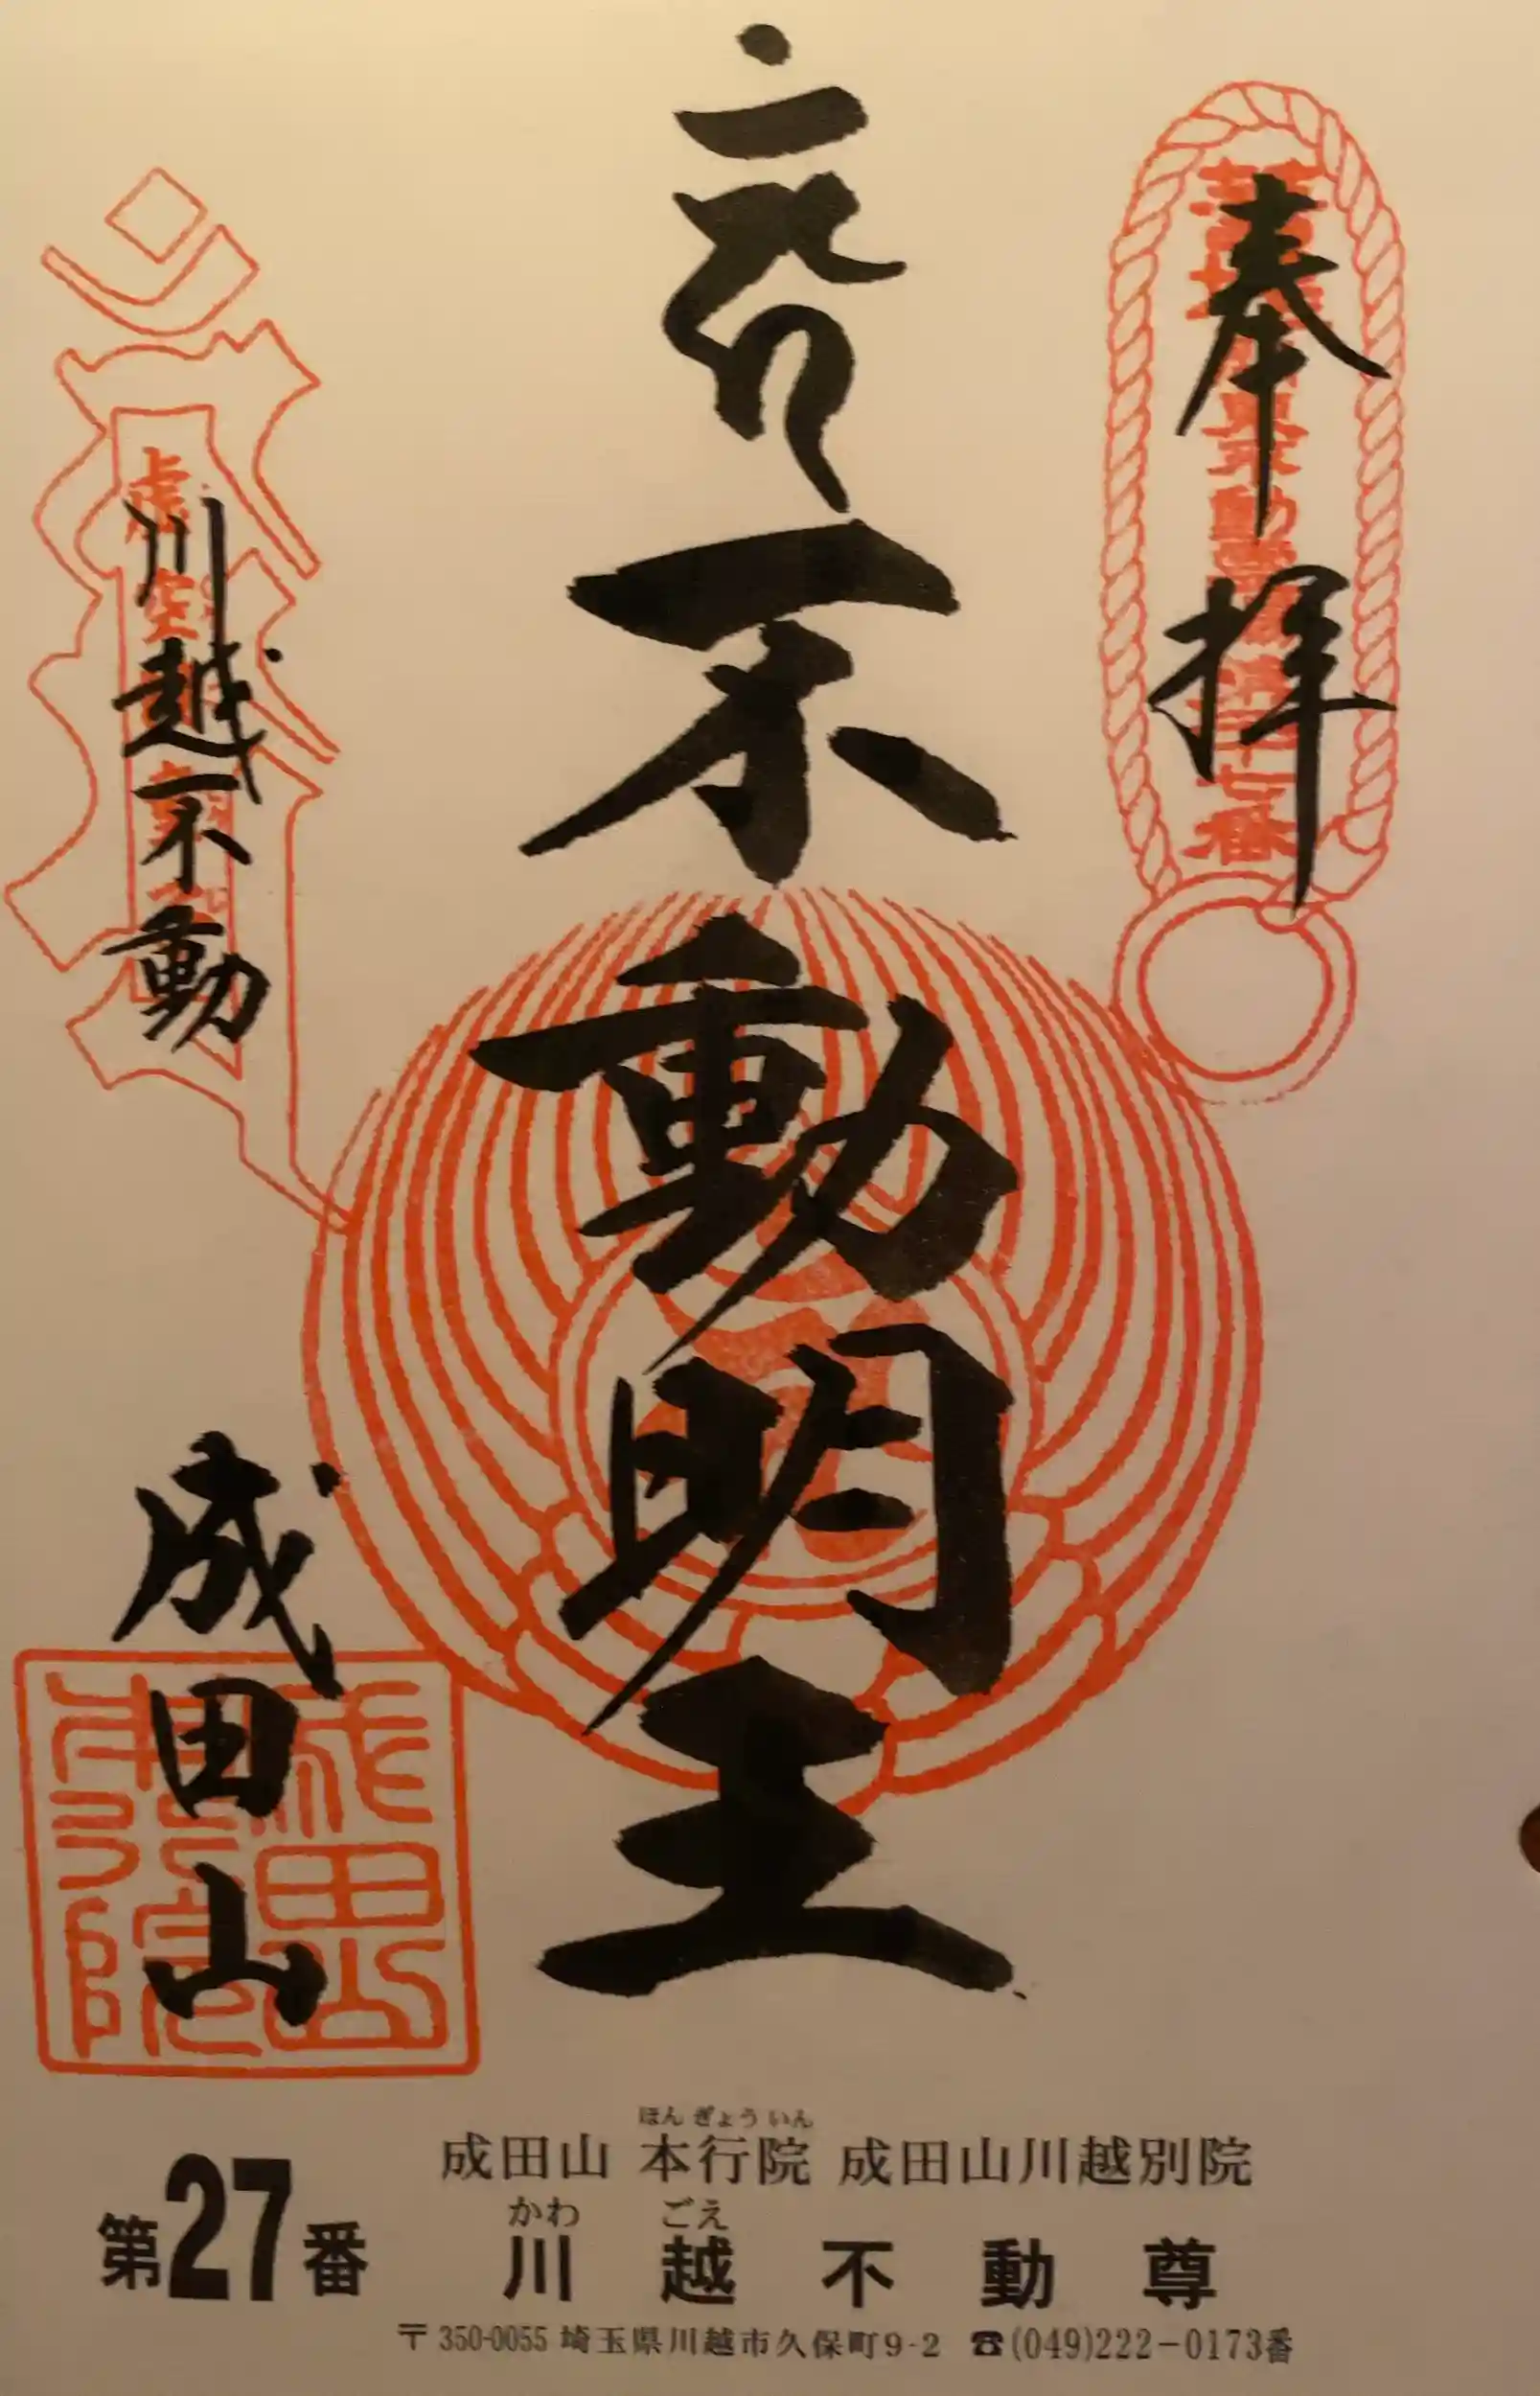 奉拝
不動明王
川越不動
成田山
ほんぎょういん
成田山 本行院 成田山川越別院
第27番
かわ ごえ
川越不動尊
〒350-0055 埼玉県川越市久保町9-2 ☎(049)222-0173番